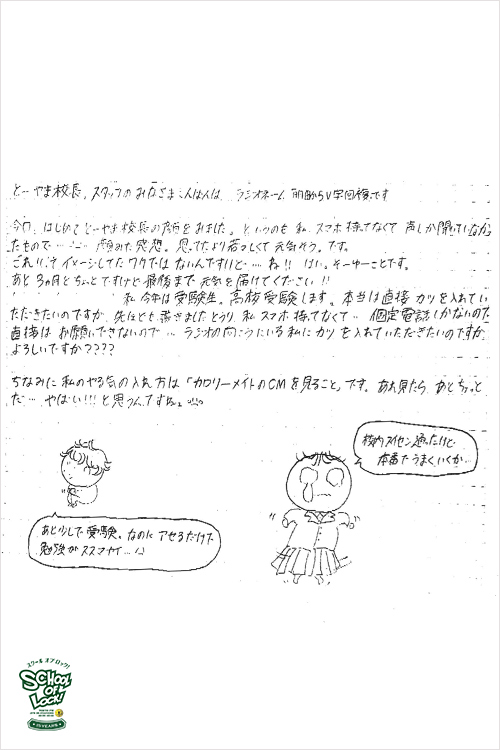 とーやま校長、スタッフのみなさまこんばんは。ラジオネーム
今日、はじめてとーやま校長の顔をみました。というのも、私、スマホ持てなくて声しか聞いていなかっ
たもので……… 顔みた感想。思ってたより若々しくて元気そう。です。
これといってイメージしてたワケではないんですけど…. ね!! はい。そーゆーことです。
あと3ヵ月とちょっとですけど最後まで元気を届けてください!!
私、今年は受験生。高校受験します。本当は直接カツを入れてい
ただきたいのですが、先ほども書きましたとうり、私スマホ持てなくて… 個定電話しかないので、
直接はお願いできないので… ラジオの向こうにいる私にカツを入れていただきたいのですが、
よろしいですか????
ちなみに私のやる気の入れ方は「カロリーメイトのCMを見ること」です。あれ見たら、あとちょっと
だ… やばい!!! と思うんですよね。
校内スイセン通ったけど
本番でうまくいくか…
あと少しで受験。なのにアセるだけで
勉強がススマナイ…
スクール オブ ロック!
SCHOOL
OF
LOCK!